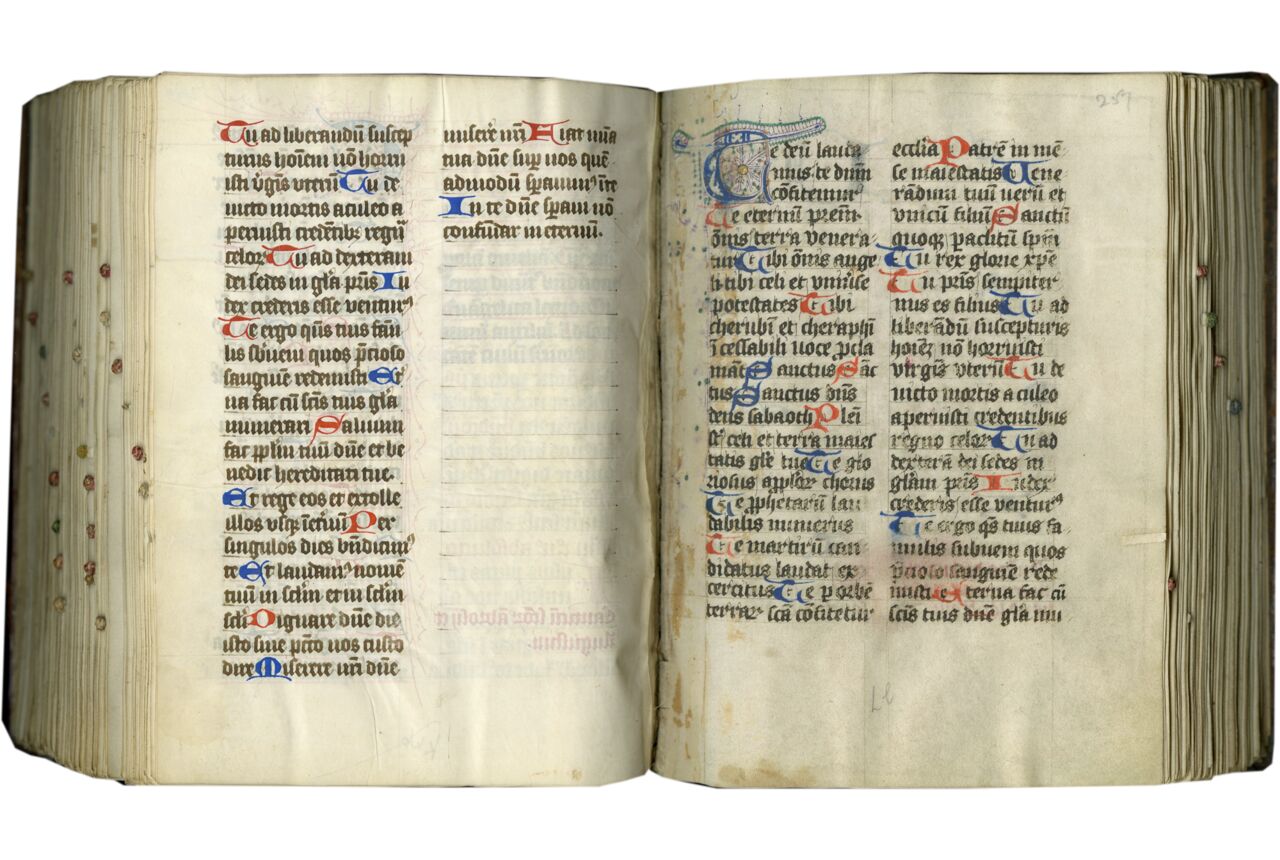 Tu ad liberandū suscep
turus hoīem nō horru
isti v̓gīs uterū Tu de
uicto mortis aculeo a
peruisti credētibꝫ regn̄
celoꝝ Tu ad dexteram
dei sedes in glā pr̄is Iu
dex crederis esse venturꝰ
Te ergo qn̄s tuis fam̄
lis sb̓ueni quos p̄cioso
sanguine redemisti Et̓
na fac cū scīs tuis glā
munerari Saluum
fac pplm̄ tuū dn̄e et be
nedic hereditati tue.
Et rege eos et extolle
illos vsqꝫ ī et̓nū Per
singulos dies bn̄dicimꝰ
te Et laudamꝰ nomē
tuū in sc̄lm et in sc̄lm
sc̄li Dignare dn̄e die
isto sine pc̄to nos custo
dire Miserere nr̄i dn̄e
miserē nr̄i Fiat mīa
tua dn̄e sup nos quē
admodū spauimꝰ ī te
In te dn̄e spaui nō
confundar in eternū.
257
Te deū lauda
mus te dnm̄
cōfitemur
Te eternū prem̄
ōnis terra venera
tur Tibi ōnis ange
li tibi celi et vniu̓se
potestates Tibi
cherubī et cheraphī
īcessabili uoce ꝓcla
māt Sanctus Sāc
tus Sanctus dn̄s
deus sabaoth Plei
st̄ celi et terra maies
tatis glē tue Te glo
riosus applōꝝ chorus
Te ꝓphetarū lau
dabilis numerus
Te martirū can
didatus laudat ex
ercitus Te p orbē
terraꝝ scā cōfitetur
ecclīa Patrē in mē
se maiestatis Uene
rādum tuū uerū et
vnicū filiū Sanctū
quoqꝫ paclitū spm̄
Tu rex glorie xp̄e
Tu pr̄is sempiter
nus es filius Tu ad
liberādū suscepturus
hoīeꝫ nō horruisti
virgis vterū Tu de
uicto mortis aculeo
aperuisti credentibus
regno celoꝝ Tu ad
dexterā dei sedes in
glām pr̄is Iudex
crederis esse venturꝰ
Te ergo qs̄ tuis fa
mulis subueni quos
p̄cioso sanguīe rede
misti Eterna fac cū
scīs tuis dn̄e glā mu